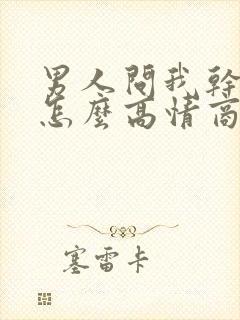 男人問我幹
怎麼高情商
塞雷卡